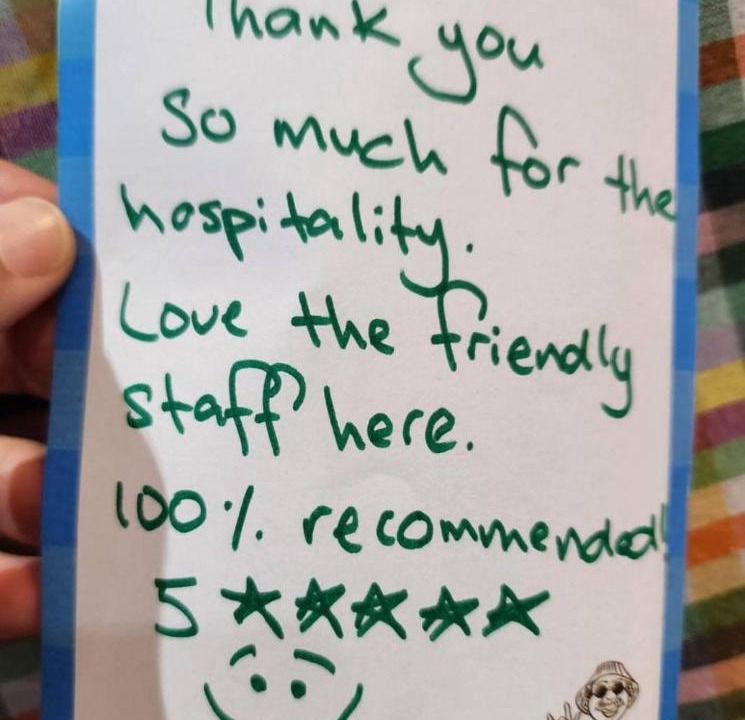 Thank you
So much for the
hospitality.
Love the friendly
staff here.
100% recommended!
5 ★★★★★